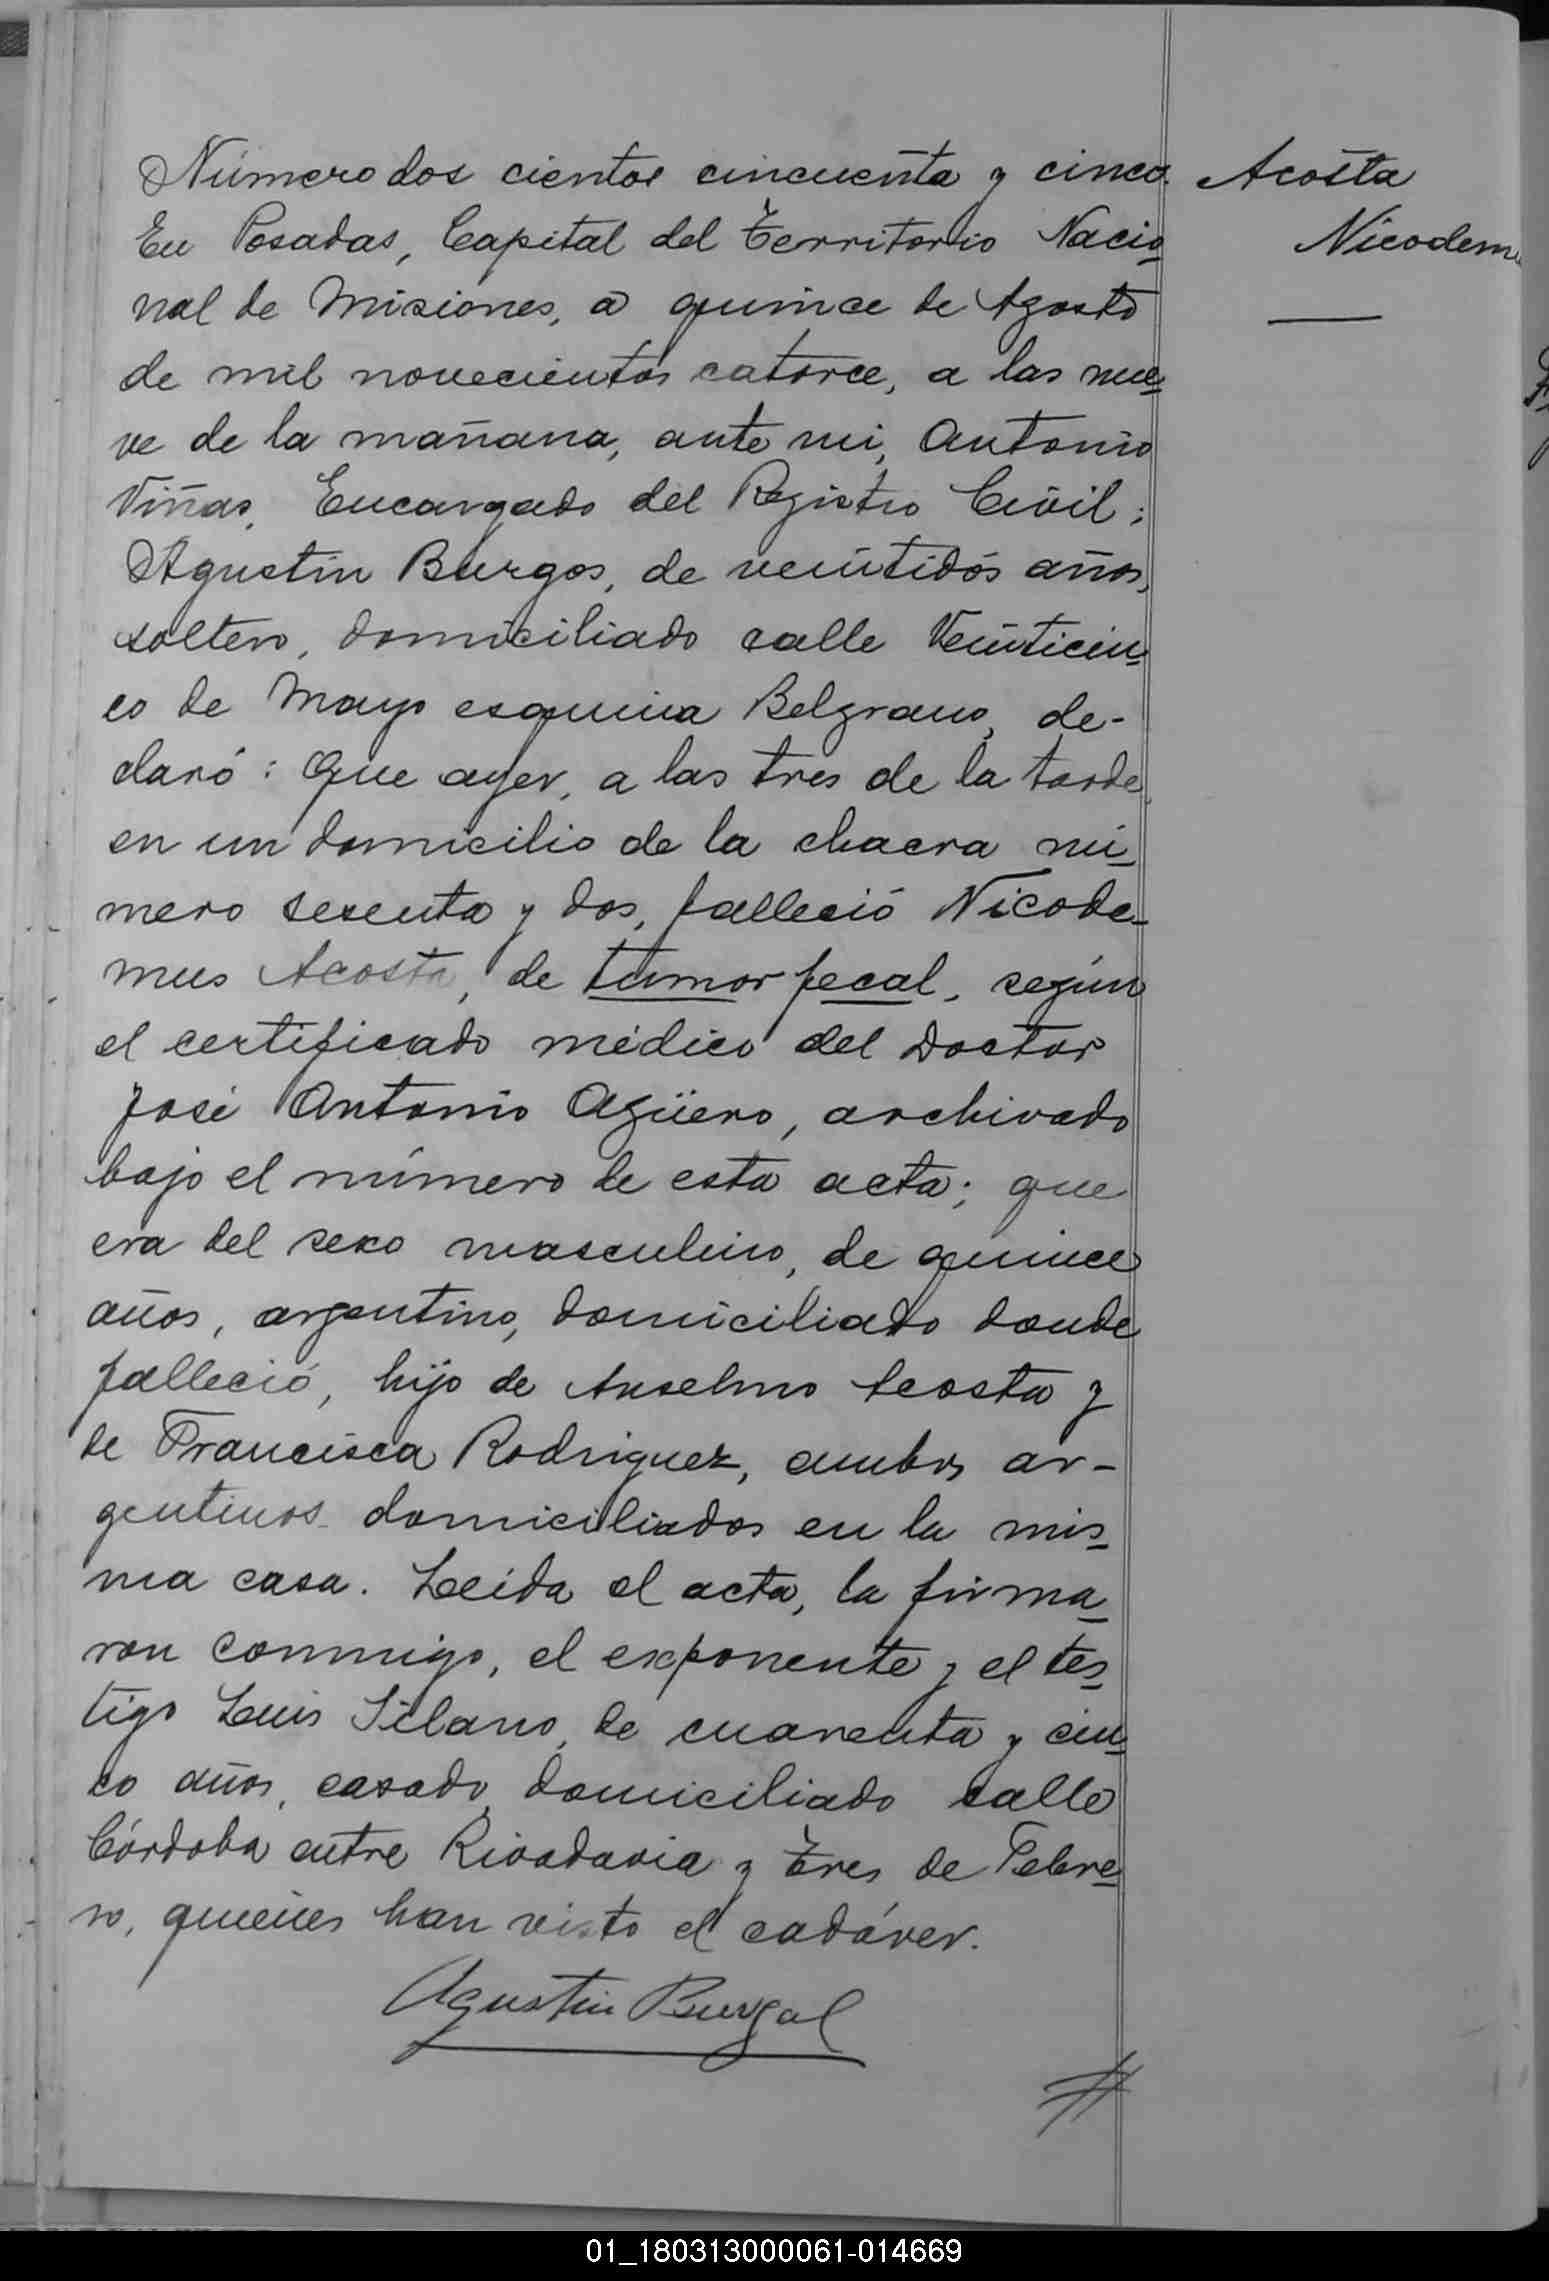 Número dos cientos cincuenta y cinco. Acosta
En Posadas, Capital del Territorio Nacio- Nicodem
nal de Misiones, a quince de Agosto
de mil novecientos catorce, a las nue-
ve de la mañana, ante mi, Antonio
Viñas, Encargado del Registro Civil;
Agustin Burgos, de veintidós años,
soltero, domiciliado calle Veinticin-
co de Mayo esquina Belgrano, de-
claró: Que ayer, a las tres de la tarde,
en un domicilio de la chacra nú-
mero sesenta y dos, falleció Nicode-
mus Acosta, de tumor fecal, según
el certificado médico del Doctor
José Antonio Agüero, archivado
bajo el número de esta acta; que
era del sexo masculino, de quince
años, argentino, domiciliado donde
falleció, hijo de Anselmo Acosta y
de Francisca Rodriguez, ambos ar-
gentinos domiciliados en la mis-
ma casa. Leida el acta, la firma-
ron conmigo, el exponente y el tes-
tigo Luis Silano, de cuarenta y cin-
co años, casado, domiciliado calle
Córdoba entre Rivadavia y Tres de Febre-
ro, quienes han visto el cadáver.
Agustin Burgal
01_180313000061-014669